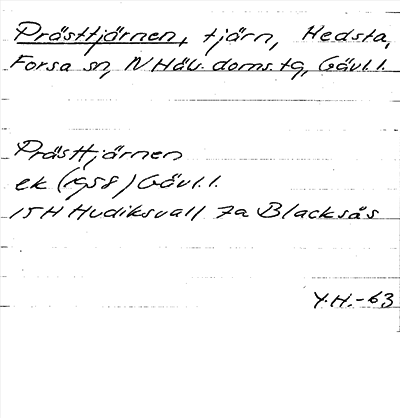 Prästtjärnen, tjärn, Hedsta,
Forsa sn, N Häls. doms.tg, Gävl.l.
Prästtjärnen
ek (1958) Gävl.l.
15H Hudiksvall 7a Blacksås
Y.H.-63